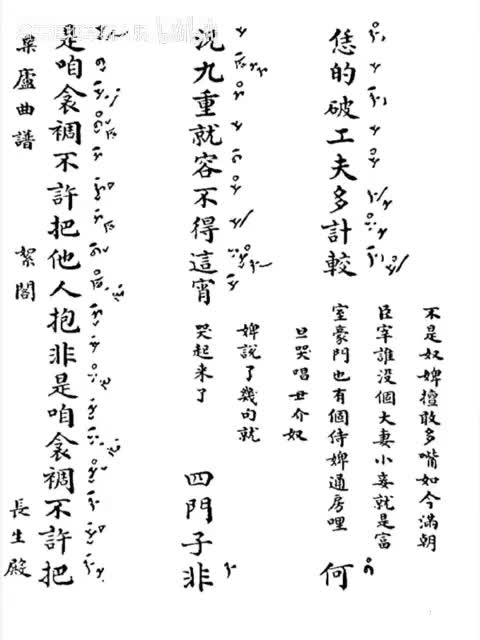 恁的破工夫多計較
不是奴婢擅敢多嘴如今滿朝
臣宰誰没個大妻小妾就是富
室豪門也有個侍婢通房哩
何
况九重就容不得這宵
旦哭唱丑介奴
婢說了幾句就
哭起来了
四門子非
是咱衾裯不許把他人抱非是咱衾裯不許把
粟廬曲譜 絮閣 長生殿